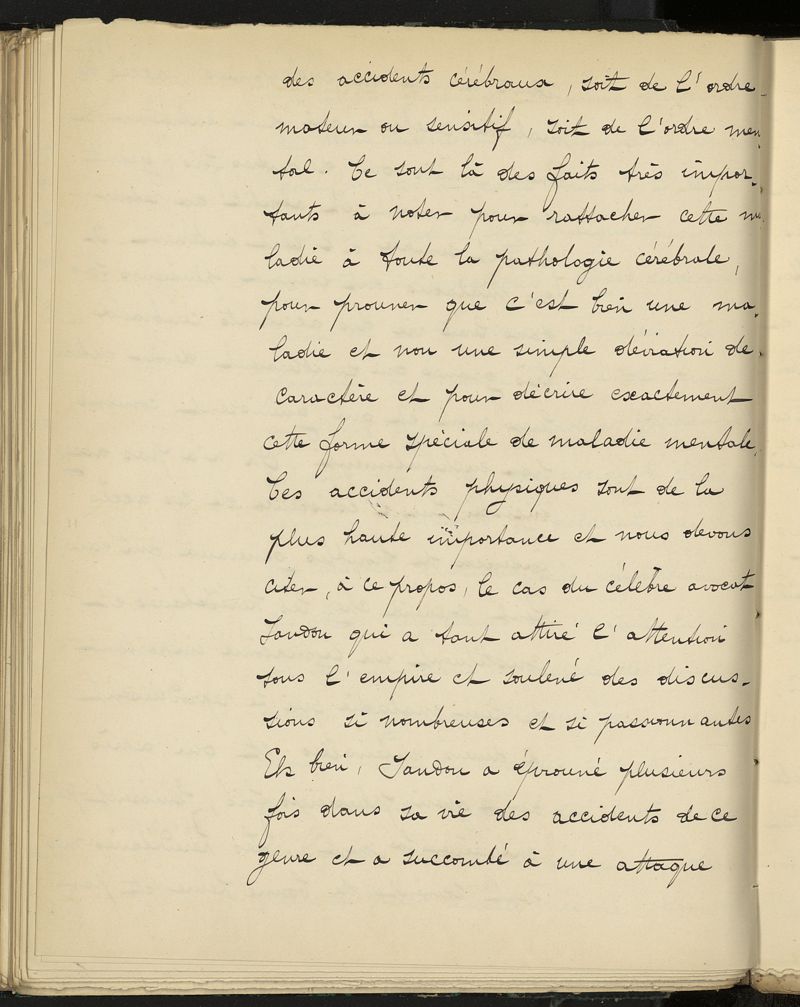 des accidents cérébraux, soit de l'ordre
moteur ou sensitif, soit de l'ordre men-
tal. Ce sont là des faits très impor-
tants à noter pour rattacher cette ma-
ladie à toute la pathologie cérébrale,
pour prouver que c'est bien une ma-
ladie et non une simple déviation de
caractère et pour décrire exactement
cette forme spéciale de maladie mentale.
Ces accidents physiques sont de la
plus haute importance et nous devons
citer, à ce propos, le cas du célèbre avocat
Sandon qui a tant attiré l'attention
sous l'empire et soulevé des discus-
sions si nombreuses et si passionnantes
Eh bien, Sandon a éprouvé plusieurs
fois dans sa vie des accidents de ce
genre et a succombé à une attaque